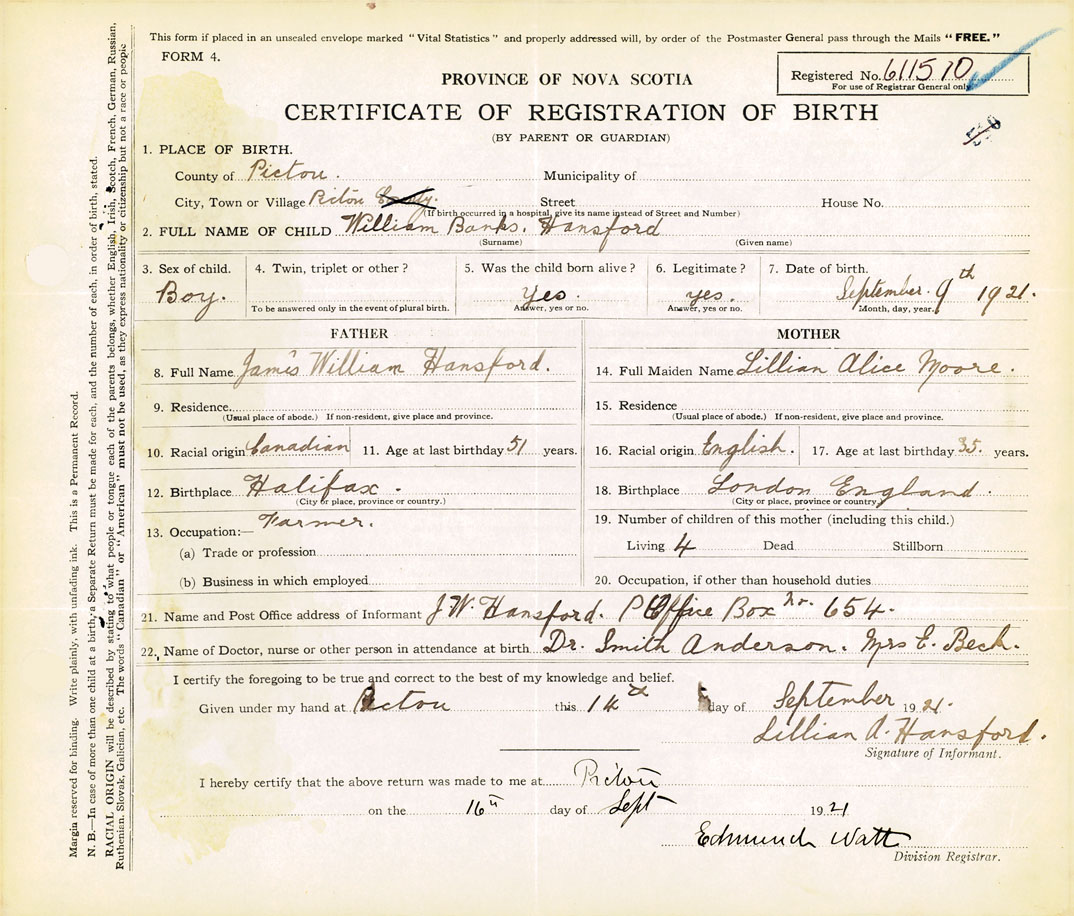 This form if placed in an unsealed envelope marked "Vital Statistics" and properly addressed will, by order of the Postmaster General pass through the Mails "FREE."
FORM 4.
Registered No. 611570
For use of Registrar General only
PROVINCE OF NOVA SCOTIA
CERTIFICATE OF REGISTRATION OF BIRTH
(BY PARENT OR GUARDIAN)
1. PLACE OF BIRTH.
County of Pictou. Municipality of
City, Town or Village Pictou County. Street House No.
(If birth occurred in a hospital, give its name instead of Street and Number)
2. FULL NAME OF CHILD William Banks. Hansford
(Surname) (Given name)
3. Sex of child. 4. Twin, triplet or other? 5. Was the child born alive? 6. Legitimate? 7. Date of birth.
Boy. Yes. yes. September. 9th 1921.
To be answered only in the event of plural birth. Answer, yes or no. Answer, yes or no. Month, day, year.
FATHER
8. Full Name James William Hansford.
9. Residence
(Usual place of abode.) If non-resident, give place and province.
10. Racial origin Canadian 11. Age at last birthday 51 years.
12. Birthplace Halifax.
(City or place, province or country.)
13. Occupation:— Farmer.
(a) Trade or profession
(b) Business in which employed
MOTHER
14. Full Maiden Name Lillian Alice Moore.
15. Residence
(Usual place of abode.) If non-resident, give place and province.
16. Racial origin English. 17. Age at last birthday 35. years.
18. Birthplace London England.
(City or place, province or country.)
19. Number of children of this mother (including this child.)
Living 4 Dead Stillborn
20. Occupation, if other than household duties
21. Name and Post Office address of Informant J W. Hansford. P Office Box No. 654.
22. Name of Doctor, nurse or other person in attendance at birth Dr. Smith Anderson. Mrs E. Beck.
I certify the foregoing to be true and correct to the best of my knowledge and belief.
Given under my hand at Pictou this 14th day of September 1921.
Lillian A. Hansford.
Signature of Informant.
I hereby certify that the above return was made to me at Pictou
on the 16th day of Sept 1921
Edmund Watt
Division Registrar.
Margin reserved for binding. Write plainly, with unfading ink. This is a Permanent Record.
N. B.—In case of more than one child at a birth, a Separate Return must be made for each, and the number of each, in order of birth, stated.
RACIAL ORIGIN will be described by stating to what people or tongue each of the parents belongs, whether English, Irish, Scotch, French, German, Russian,
Ruthenian, Slovak, Galician, etc. The words "Canadian" or "American" must not be used, as they express nationality or citizenship but not a race or people